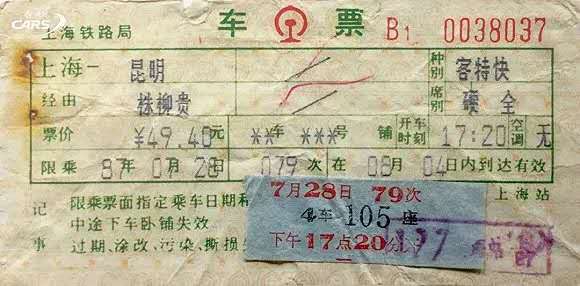 CARS
上海铁路局 车票 B1 0038037
上海— 昆明 种别 客特快
经由 株柳贵 席别 硬 全
票价 ¥49.40元 **车 ***号 铺 开车时刻 17:20 空调 无
限乘 87年07月28日 079次 在08月04日内到达有效
7月28日 79次
上海站
记 限乘票面指定乘车日期和
4车 105座
中途下车卧铺失效
下午17点20分
事 过期、涂改、污染、撕损